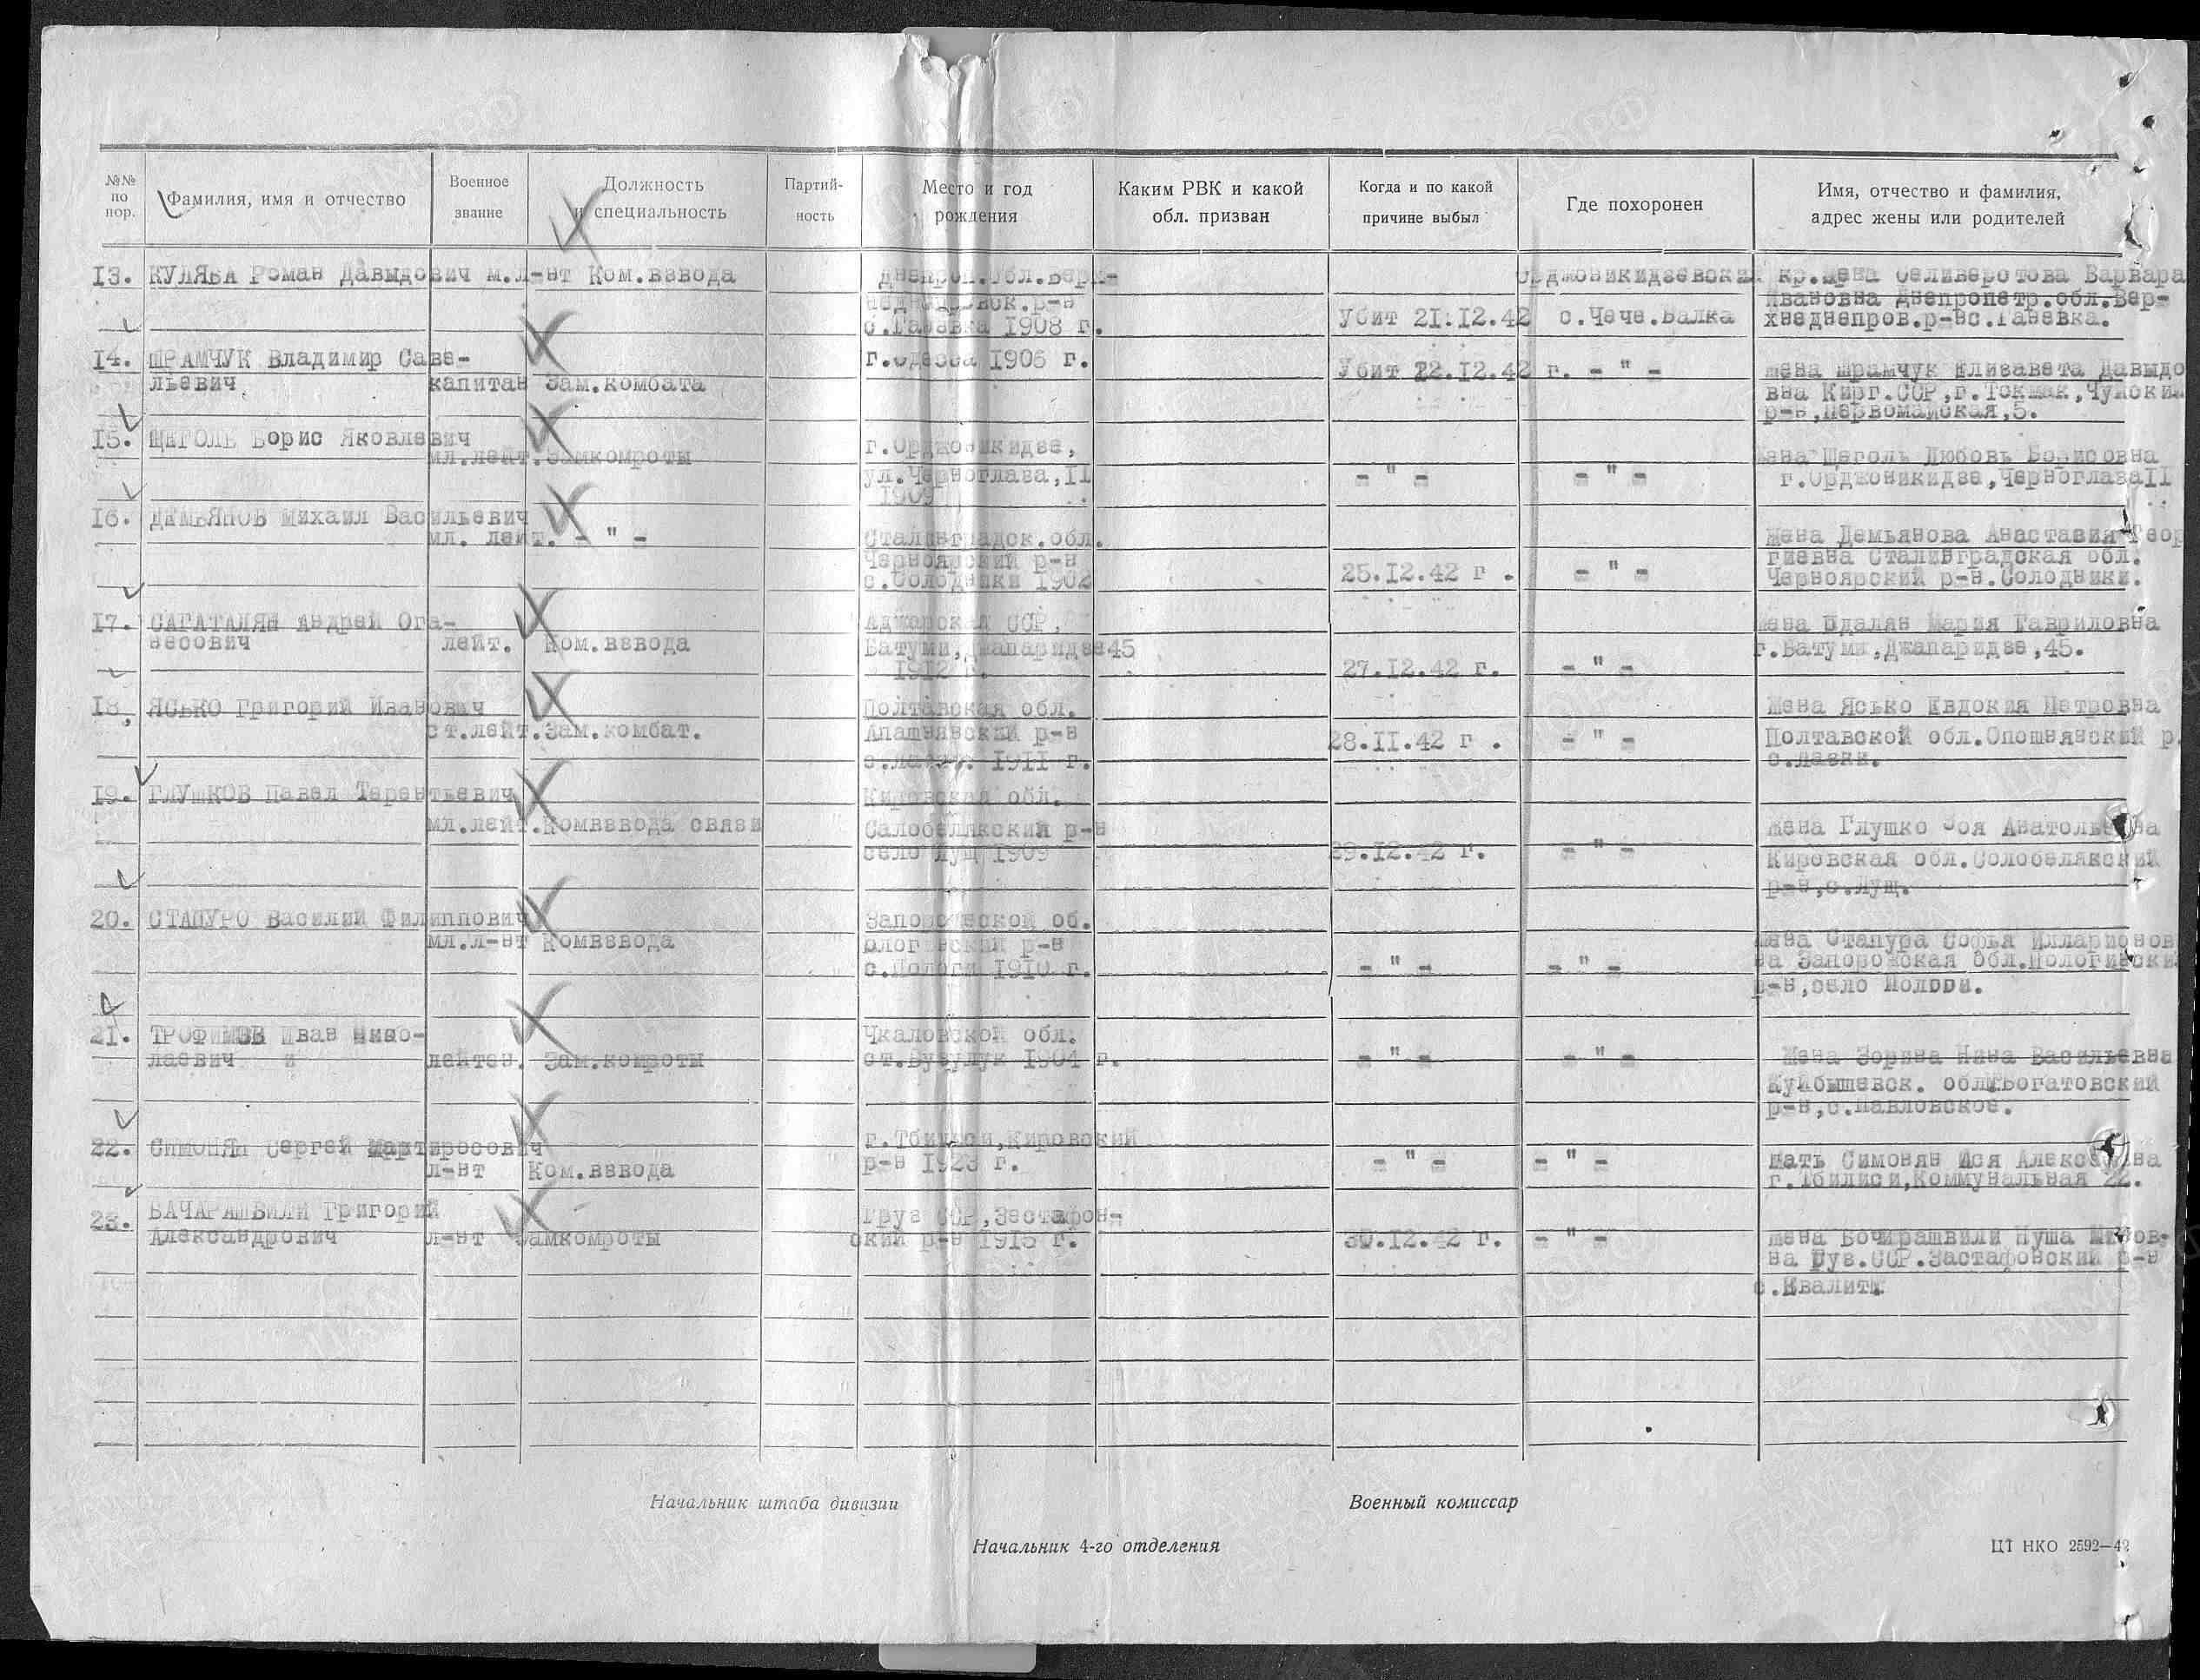 №№ по пор.
Фамилия, имя и отчество
Военное звание
Должность и специальность
Партийность
Место и год рождения
Каким РВК и какой обл. призван
Когда и по какой причине выбыл
Где похоронен
Имя, отчество и фамилия, адрес жены или родителей
13. КУЛЯБА Роман Давыдович м.л-нт Ком.взвода Днепроп.обл.Верх- Орджоникидзевский кр. жена Селиверстова Варвара
р-н Ивановна Днепропетр.обл.Вер-
1908 г. Убит 21.12.42 с.Чече.Балка хнеднепров.р-н с.Ганевка.
14. ШРАМЧУК Владимир Саве- г.Одесса 1906 г. Убит 22.12.42 г. - " - жена Шрамчук Елизавета Давыдо
льевич капитан Зам.комбата вна Кирг.ССР,г.Токмак,Чуйский
р-н,Первомайская,5.
15. ЩЕГОЛЬ Борис Яковлевич г.Орджоникидзе,
мл.лейт. Замкомроты ул.Черноглаза,11 - " - - " - жена Щеголь Любовь Борисовна
1909 г.Орджоникидзе,Черноглаза11
16. ДЕМЬЯНОВ Михаил Васильевич
мл. лейт. - " - Сталинградск.обл. жена Демьянова Анастасия Геор
Черноярский р-н гиевна Сталинградская обл.
с.Солодники 1902 25.12.42 г . - " - Черноярский р-н.Солодники.
17. САГАТАЛЯН Андрей Ога- Аджарская ССР, жена Мария Гавриловна
несович лейт. Ком.взвода Батуми,Джапаридзе45 г.Батуми,Джапаридзе,45.
1912 г. 27.12.42 г. - " -
18. ЯСЬКО Григорий Иванович Полтавская обл. жена Ясько Евдокия Петровна
ст.лейт.Зам.комбат. р-н 28.11.42 г . - " - Полтавской обл.Опошнянский р.
1911 г. с.Лазки.
19. ГЛУШКОВ Павел Терентьевич Кировская обл.
мл.лейт.Комвзвода связи Салобелякский р-н жена Глушко Зоя Анатольевна
село Лущ 1909 29.12.42 г. - " - Кировская обл.Солобелякский
р-н,с.Лущ.
20. СТАПУРО Василий Филиппович Запорожской об.
мл.л-нт Комвзвода р-н жена Стапура Софья Илларионов
с.Пологи 1910 г. - " - - " - на Запорожская обл.Пологиевский
р-н,село Пологи.
21. ТРОФИМОВ Иван Нико- Чкаловской обл.
лаевич лейтен. Зам.комроты ст.Бузулук 1904 г. - " - - " - жена Зорина Нина Васильевна
Куйбышевск. обл.Богатовский
р-н,с.Павловское.
22. СИМОНЯН Сергей Мартиросович г.Тбилиси,Кировский
л-нт Ком.взвода р-н 1923 г. - " - - " - мать Симонян
г.Тбилиси,Коммунальная 22.
23. БАЧАРАШВИЛИ Григорий Груз ССР,Зестафон-
Александрович л-нт Замкомроты ский р-н 1915 г. 30.12.42 г. - " - жена Бочирашвили Нуша
на Груз.ССР.Застафовский р-н
с.Квалити
Начальник штаба дивизии
Военный комиссар
Начальник 4-го отделения
ЦТ НКО 2592—42